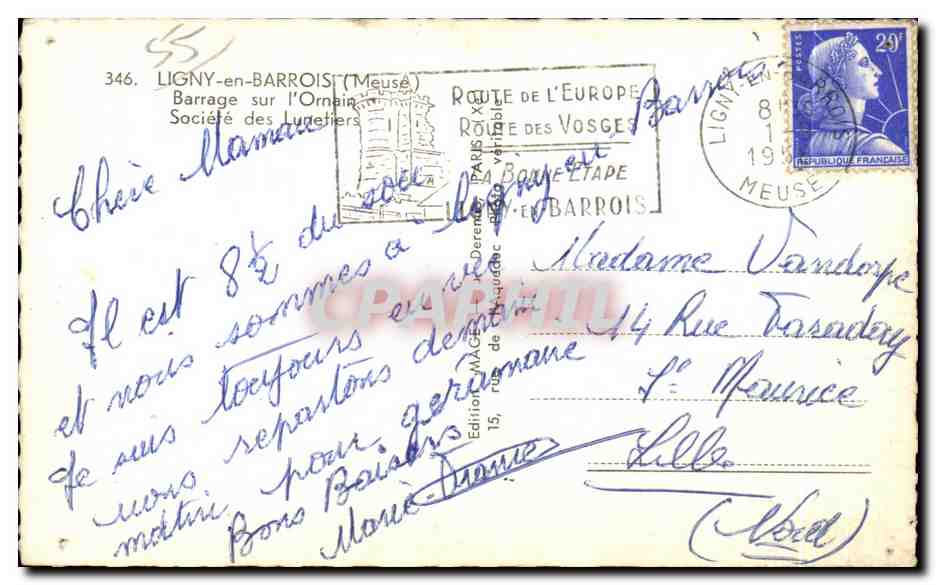 55
346. LIGNY-en-BARROIS (Meuse)
Barrage sur l'Ornain
Société des Lunetiers
ROUTE DE L'EUROPE
ROUTE DES VOSGES
LA BONNE ETAPE
LIGNY-EN-BARROIS
LIGNY-EN-BARROIS
8
1
MEUSE
POSTES
20F
REPUBLIQUE FRANÇAISE
Chère Maman
Il est 8½ du soir
et nous sommes à Ligny en Barrois
Je suis toujours en vie
nous repartons demain
matin pour géramane
Bons Baisers
Marie
Edition MAGE
15, rue de l'Aqueduc
PARIS
Photo véritable
CPAPHIL
Madame Vandorpe
14 Rue Faraday
St Maurice
Lille
(Nord)